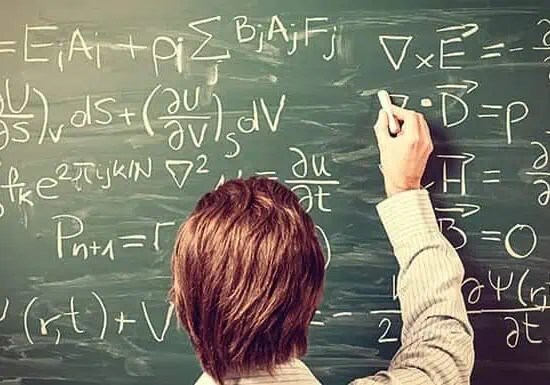 = EᵢAᵢ + pᵢ ∑ⱼ BⱼAⱼFⱼ
∇ × E⃗ = - ∂
∂U/∂S)ᵥ dS + (∂U/∂V)ₛ dV
∇ · D⃗ = ρ
fₖ e^(2πijk/N)
∇² u = ∂u/∂t
H⃗ = ∂
Pₙ₊₁ = r
B⃗ = 0
Ψ(r,t) + V
-
2
∂Ψ(r,
∂t